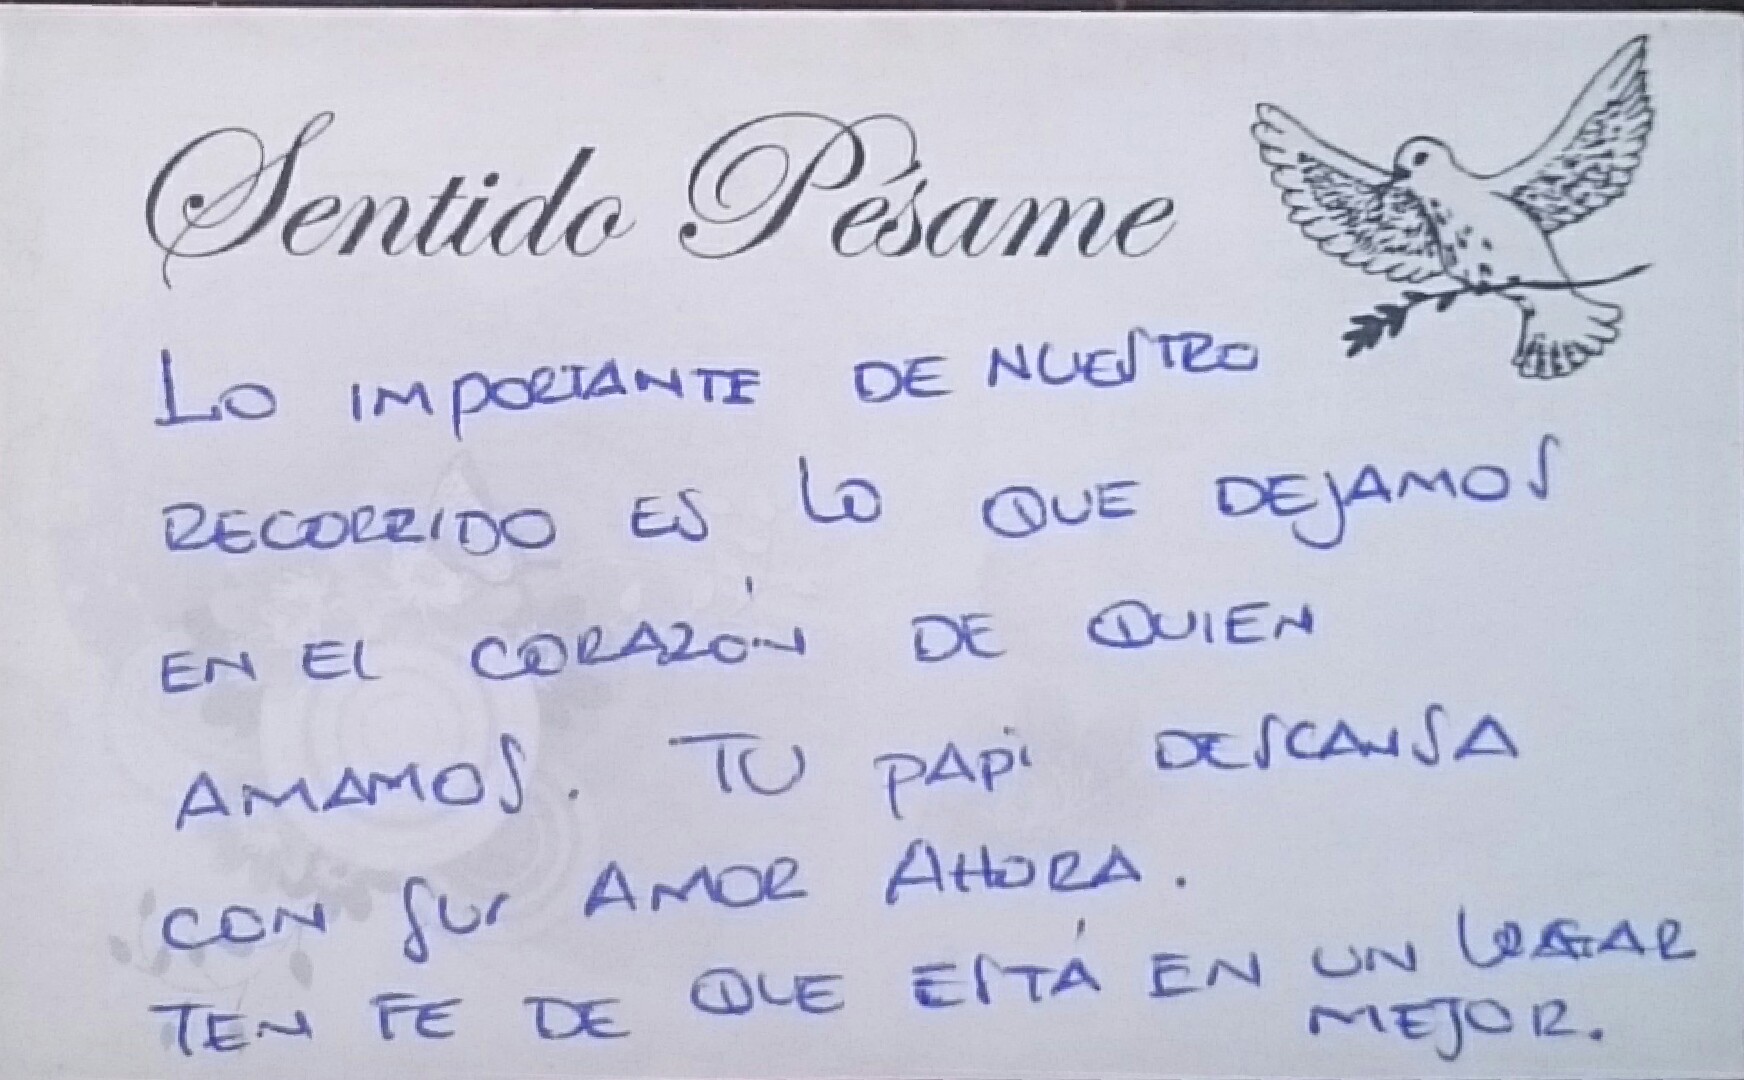 Sentido Pésame
LO IMPORTANTE DE NUESTRO
RECORRIDO ES LO QUE DEJAMOS
EN EL CORAZÓN DE QUIEN
AMAMOS. TU PAPi DESCANSA
CON SU AMOR AHORA.
TEN FE DE QUE ESTÁ EN UN LUGAR
MEJOR.